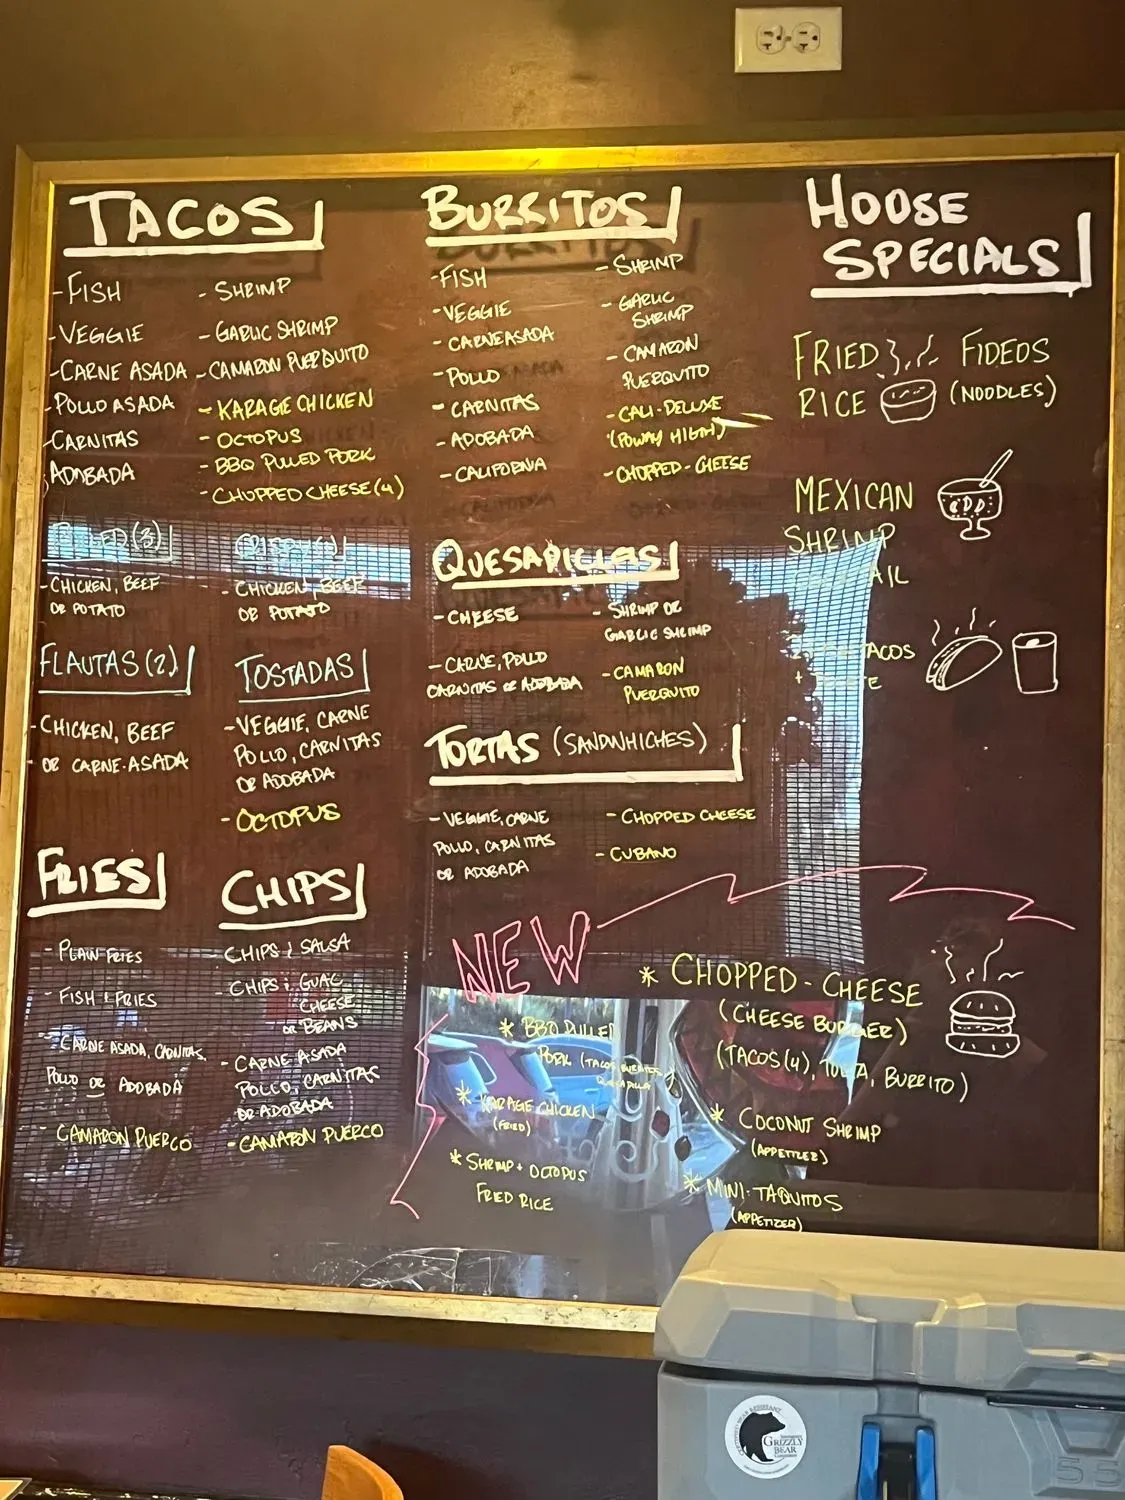 TACOS
- FISH
- VEGGIE
- CARNE ASADA
- POLLO ASADA
- CARNITAS
- ADOBADA
- SHRIMP
- GARLIC SHRIMP
- CAMARON PUERQUITO
- KARAGE CHICKEN
- OCTOPUS
- BBQ PULLED PORK
- CHOPPED CHEESE (4)
- CHICKEN, BEEF
OR POTATO
- CHICKEN, BEEF
OR POTATO
FLAUTAS (2)
- CHICKEN, BEEF
- OR CARNE-ASADA
TOSTADAS
- VEGGIE, CARNE
POLLO, CARNITAS
OR ADOBADA
- OCTOPUS
FRIES
- PLAIN FRIES
- FISH & FRIES
- CARNE ASADA, CARNITAS,
POLLO OR ADOBADA
- CAMARON PUERCO
CHIPS
CHIPS & SALSA
- CHIPS & GUAC
CHEESE
OR BEANS
- CARNE ASADA
POLLO, CARNITAS
OR ADOBADA
- CAMARON PUERCO
BURRITOS
- FISH
- VEGGIE
- CARNE ASADA
- POLLO
- CARNITAS
- ADOBADA
- CALIFORNIA
- SHRIMP
- GARLIC
SHRIMP
- CAMARON
PUERQUITO
- CALI-DELUXE
(POWAY HIGH)
- CHOPPED-CHEESE
QUESADILLAS
- CHEESE
- CARNE, POLLO
CARNITAS OR ADOBADA
- SHRIMP OR
GARLIC SHRIMP
- CAMARON
PUERQUITO
TORTAS (SANDWHICHES)
- VEGGIE, CARNE
POLLO, CARNITAS
OR ADOBADA
- CHOPPED CHEESE
- CUBANO
HOUSE
SPECIALS
FRIED
RICE
FIDEOS
(NOODLES)
MEXICAN
SHRIMP
NEW
* BBQ PULLED
PORK (TACOS, BURRITOS
QUESADILLA)
* KARAGE CHICKEN
(FRIED)
* SHRIMP + OCTOPUS
FRIED RICE
* CHOPPED-CHEESE
(CHEESE BURGER)
(TACOS (4), TORTA, BURRITO)
* COCONUT SHRIMP
(APPETIZER)
* MINI-TAQUITOS
(APPETIZER)
GRIZZLY
BEAR
55